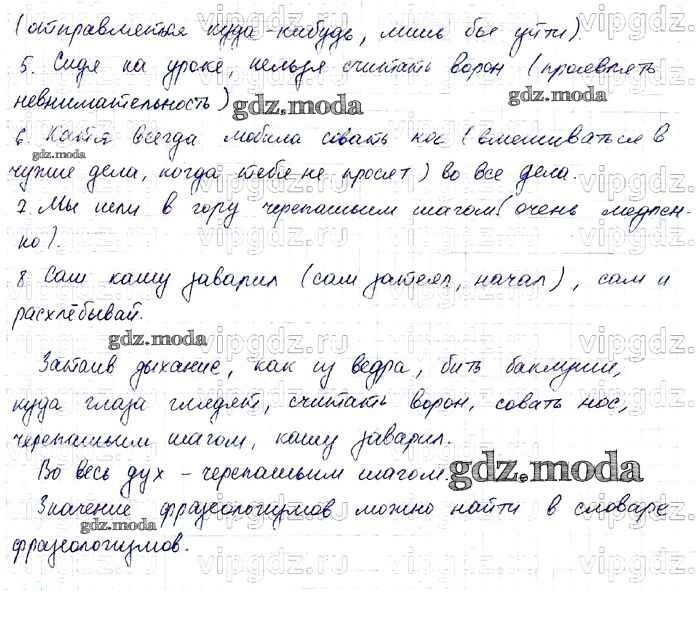 (отправиться куда-нибудь, лишь бы уйти).
5. Сидя на уроке, нельзя считать ворон (проявлять
невнимательность)
6. Катя всегда любила совать нос (вмешиваться в
чужие дела, когда тебя не просят) во все дела.
7. Мы шли в гору черепашьим шагом (очень медлен-
но).
8 Сам кашу заварил (сам затеял, начал), сам и
расхлёбывай.
Затаив дыхание, как из ведра, бить баклуши,
куда глаза глядят, считать ворон, совать нос,
черепашьим шагом, кашу заварил.
Во весь дух - черепашьим шагом.
Значение фразеологизмов можно найти в словаре
фразеологизмов.
gdz.moda
vipgdz.ru